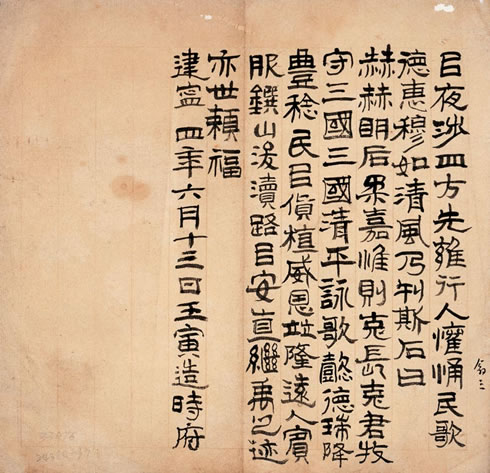 以夜涉四方无雍行人懽悀民歌
德惠穆如清風乃刊斯石曰
赫赫明后柔嘉惟則克長克君牧
守三國三國清平詠歌懿德瑞降
豊稔民以貨植威恩並隆遠人賓
服鐉山浚瀆路以安直繼禹之迹
亦世賴福
建寧四年六月十三日壬寅造時府